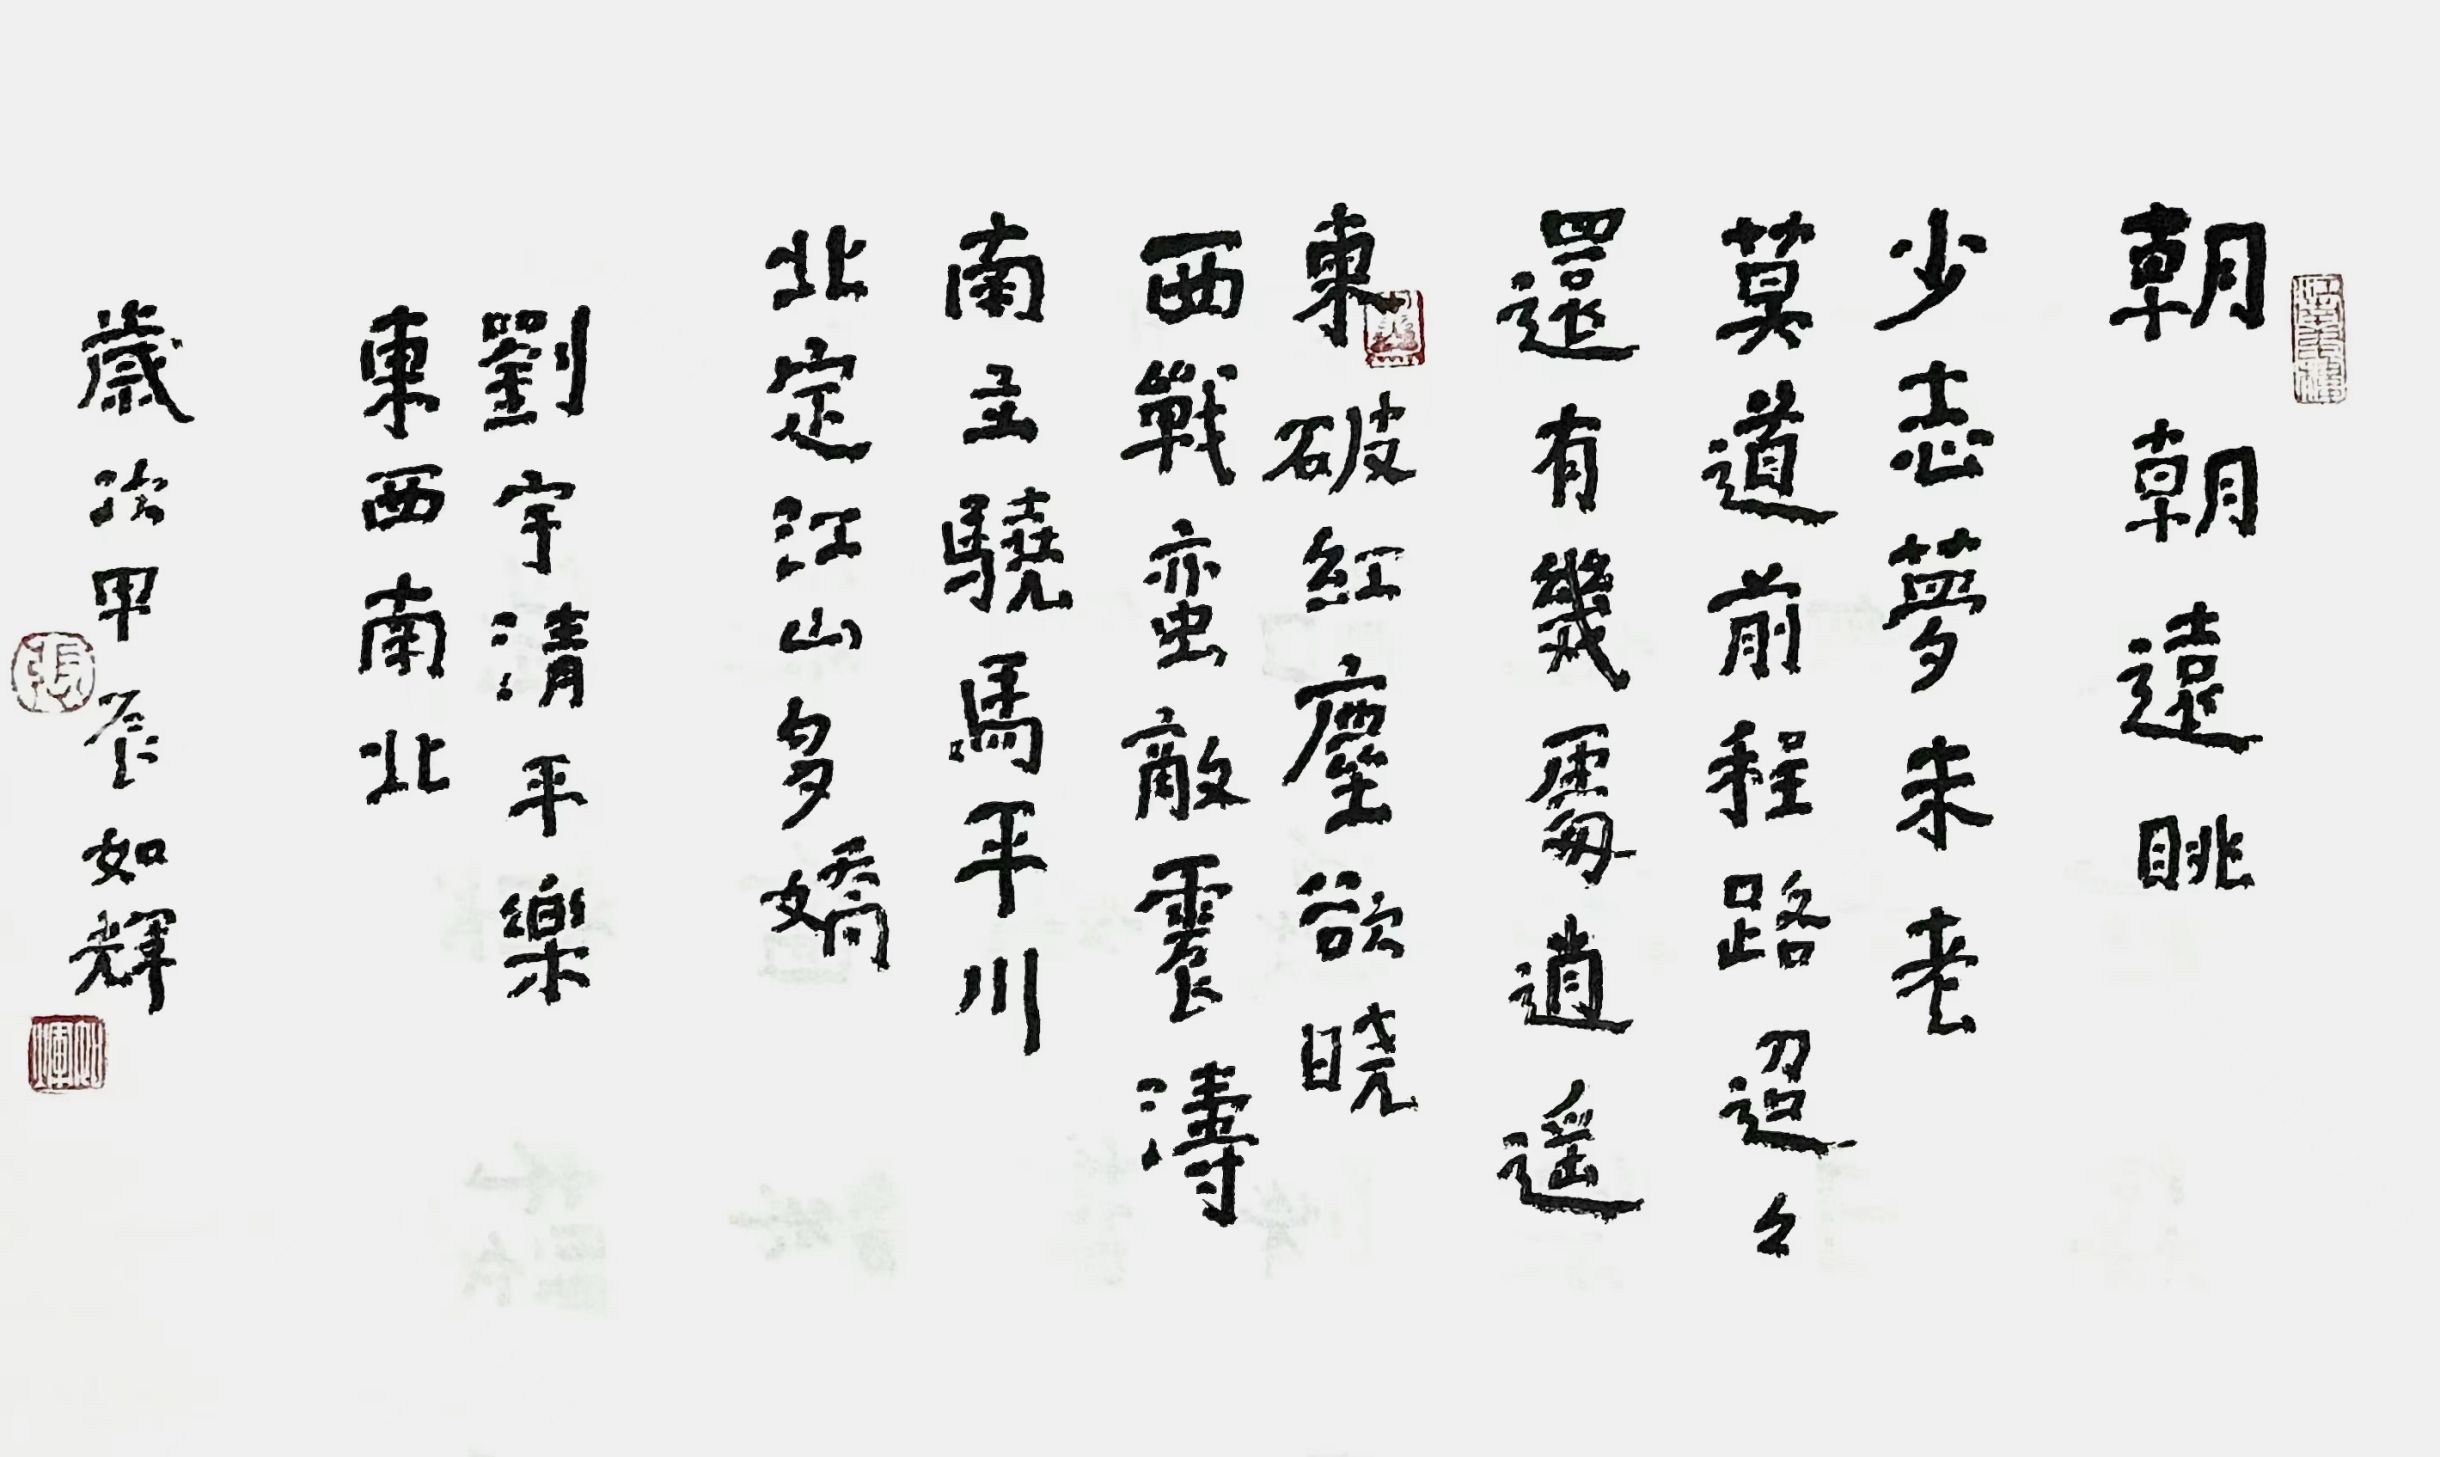 朝朝遠眺
少志夢未老
莫道前程路迢々
還有幾處逍遥
東破紅塵欲晓
西戰蛮敵震濤
南主驍馬平川
北定江山多嬌
劉宇清平樂
東西南北
歲次甲辰如輝
張
如輝